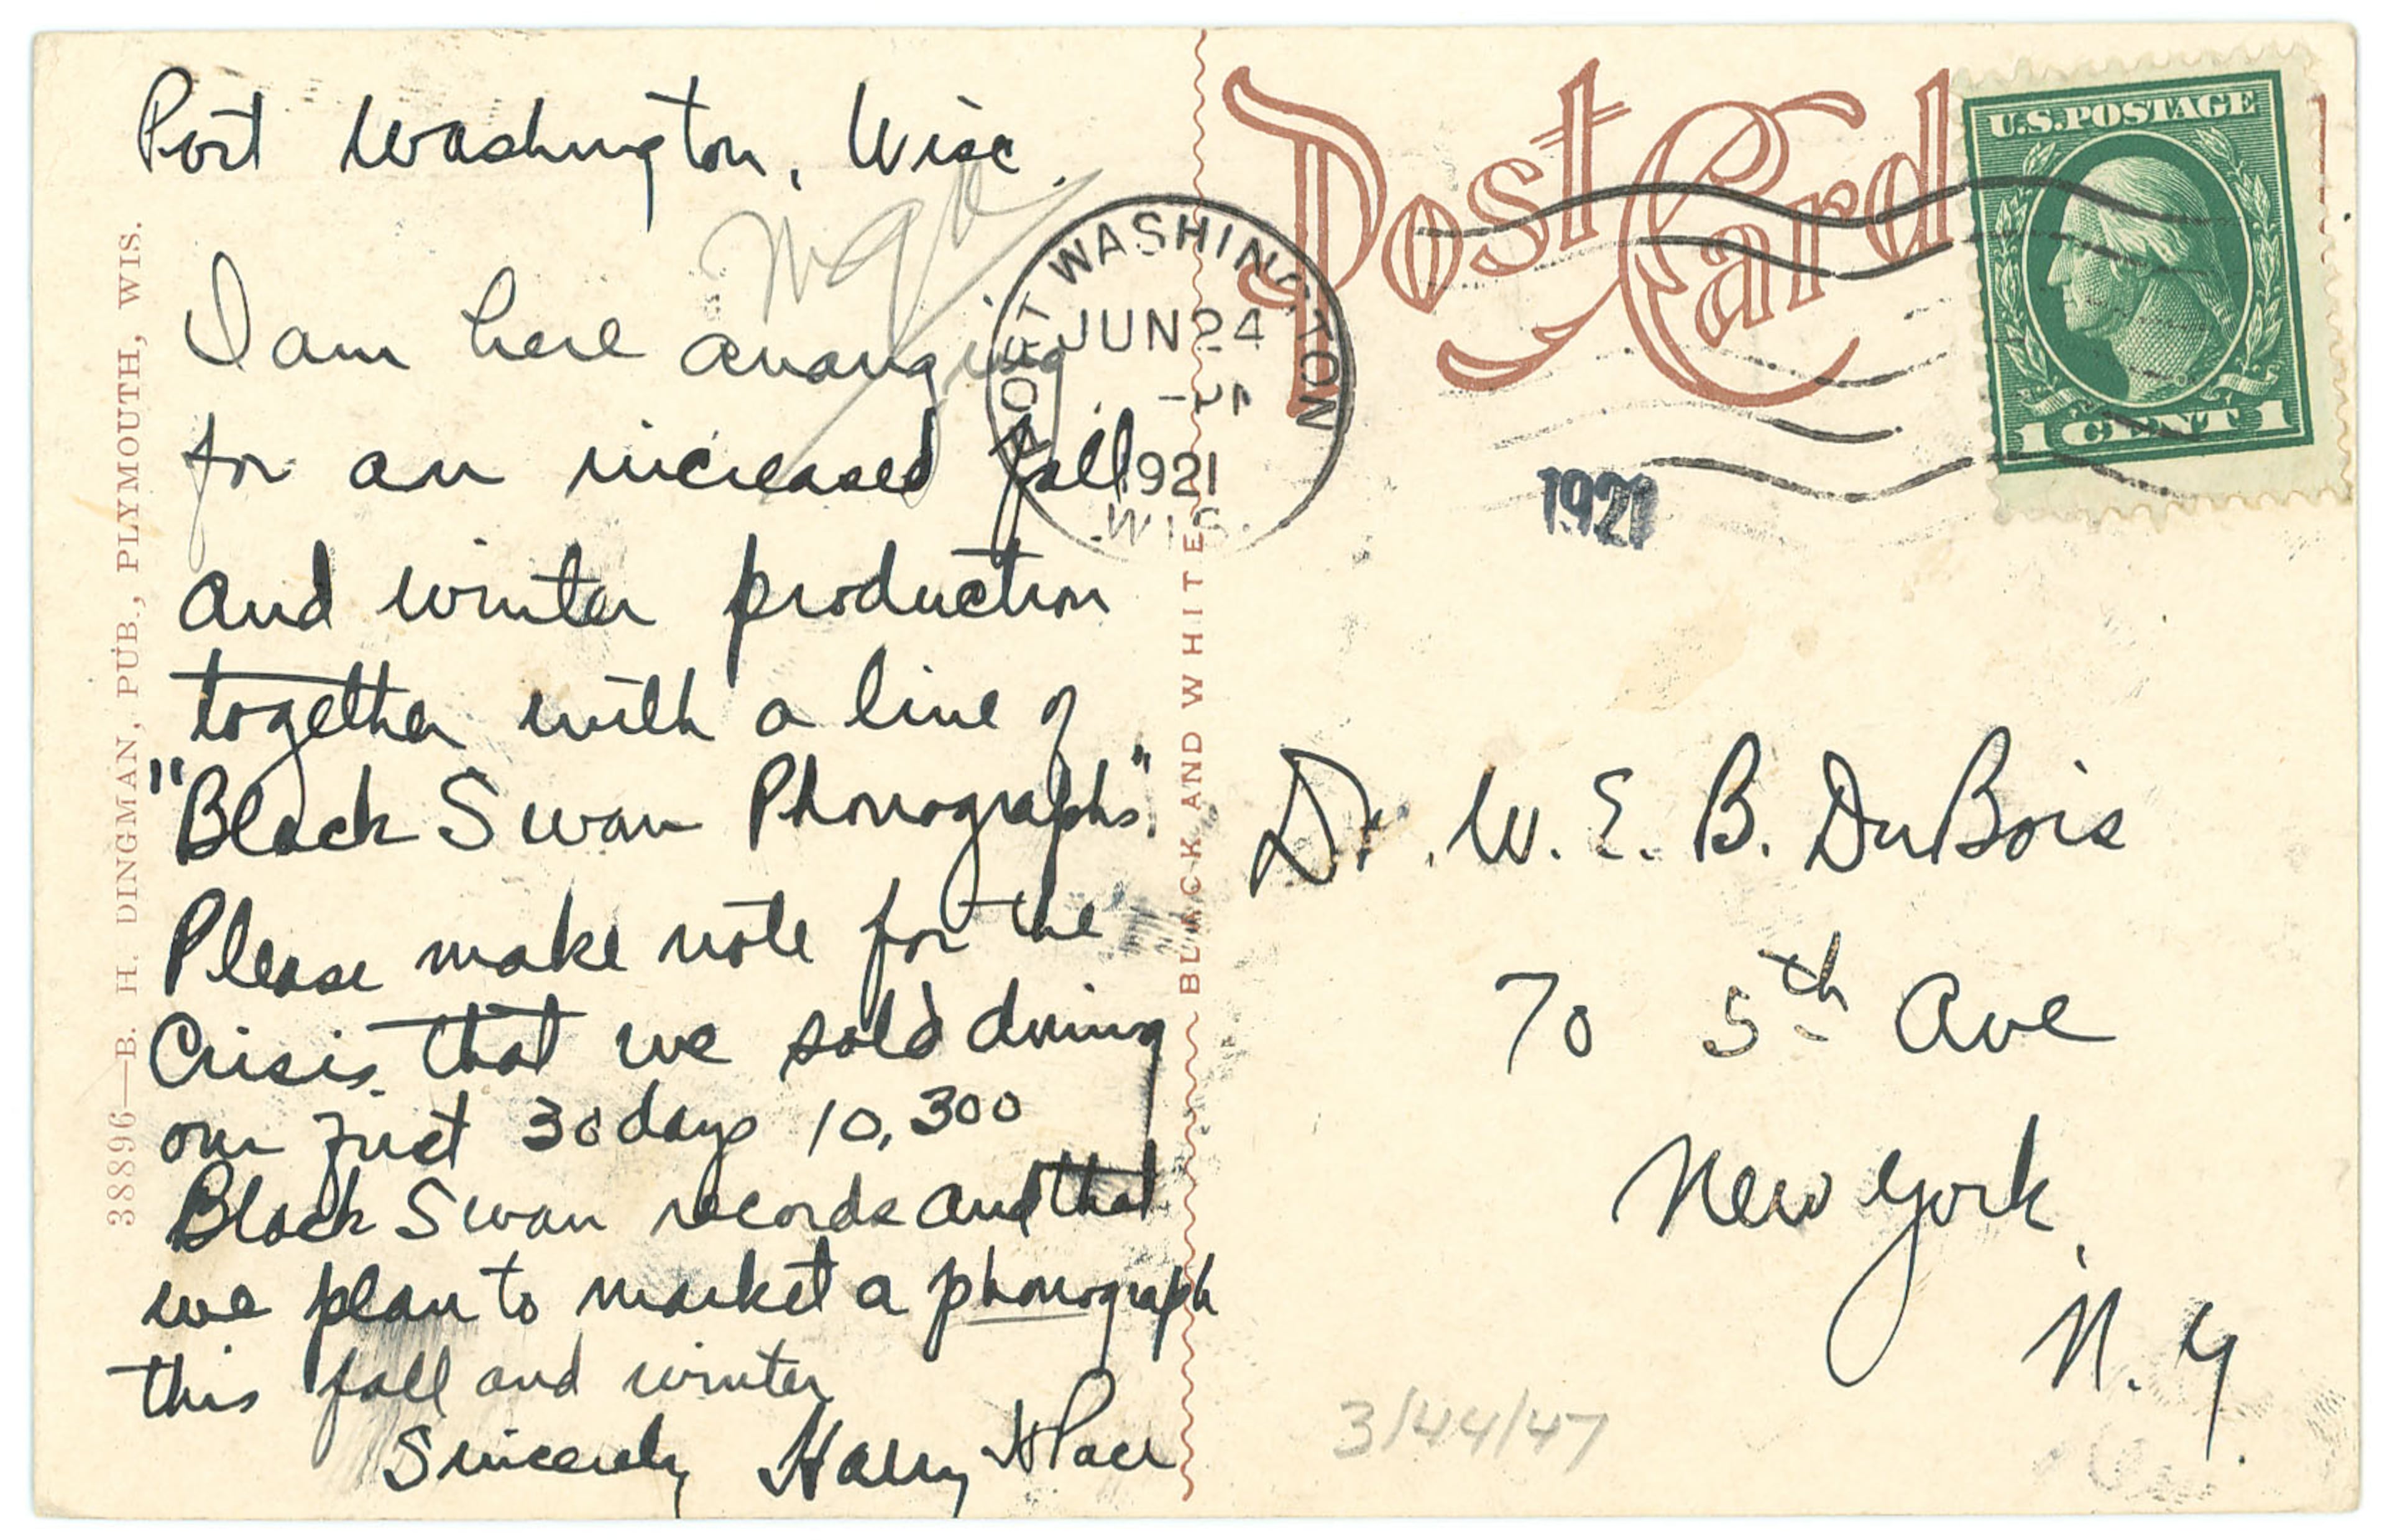 Port Washington, Wisc.
I am here arranging
for an increased fall
and winter production
together with a line of
"Black Swan Phonographs".
Please make note for the
Crisis that we sold during
our first 30 days 10,300
Black Swan records and that
we plan to market a phonograph
this fall and winter
Sincerely, Harry H Pace
38896—B. H. DINGMAN, PUB., PLYMOUTH, WIS.
BLACK AND WHITE
Post Card
PORT WASHINGTON
JUN 24
1921
WIS.
U.S. POSTAGE
1 CENT 1
1921
Dr. W. E. B. DuBois
70 5th Ave
New York,
N. Y.
3/44/47